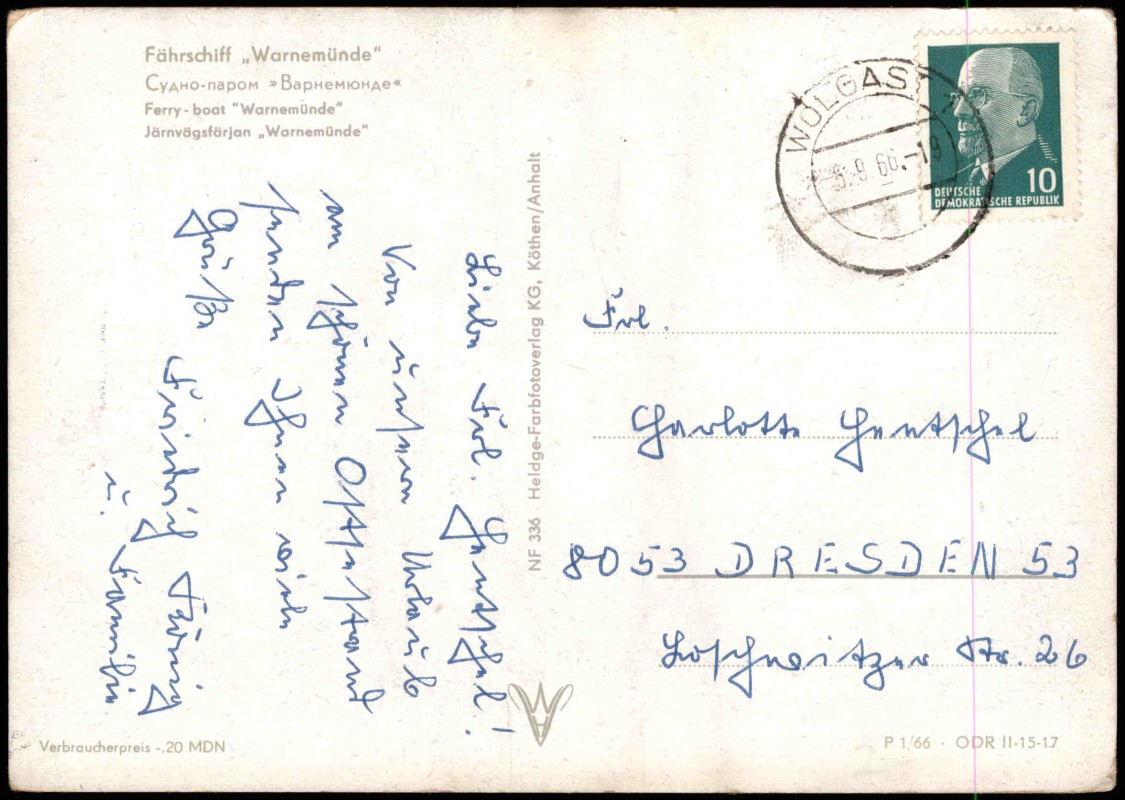 Fährschiff „Warnemünde“
Судно-паром »Варнемюнде«
Ferry-boat “Warnemünde”
Järnvägsfärjan „Warnemünde“
WOLGAST
5.9.66.-19
10
DEUTSCHE
DEMOKRATISCHE REPUBLIK
Liebe Frl. Hentschel!
Von unserm Urlaub
am schönen Ostseestrand
senden Ihnen viele
Grüße
Friedrich
u. Familie
NF 336 Heldge-Farbfotoverlag KG, Köthen/Anhalt
Frl.
Charlotte Hentschel
8053 DRESDEN 53
Loschwitzer Str. 26
Verbraucherpreis -,20 MDN
P 1/66 · ODR II-15-17